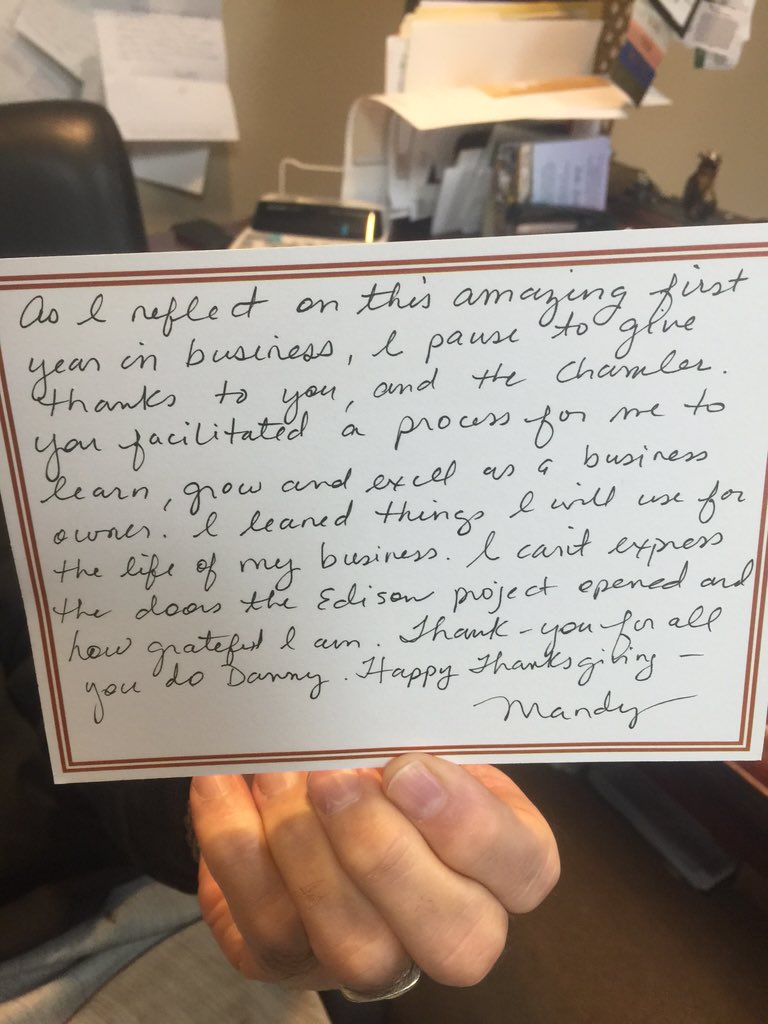 As I reflect on this amazing first
year in business, I pause to give
thanks to you, and the Chamber.
You facilitated a process for me to
learn, grow and excell as a business
owner. I leaned things I will use for
the life of my business. I can't express
the doors the Edison project opened and
how grateful I am. Thank-you for all
you do Danny. Happy Thanksgiving –
Mandy